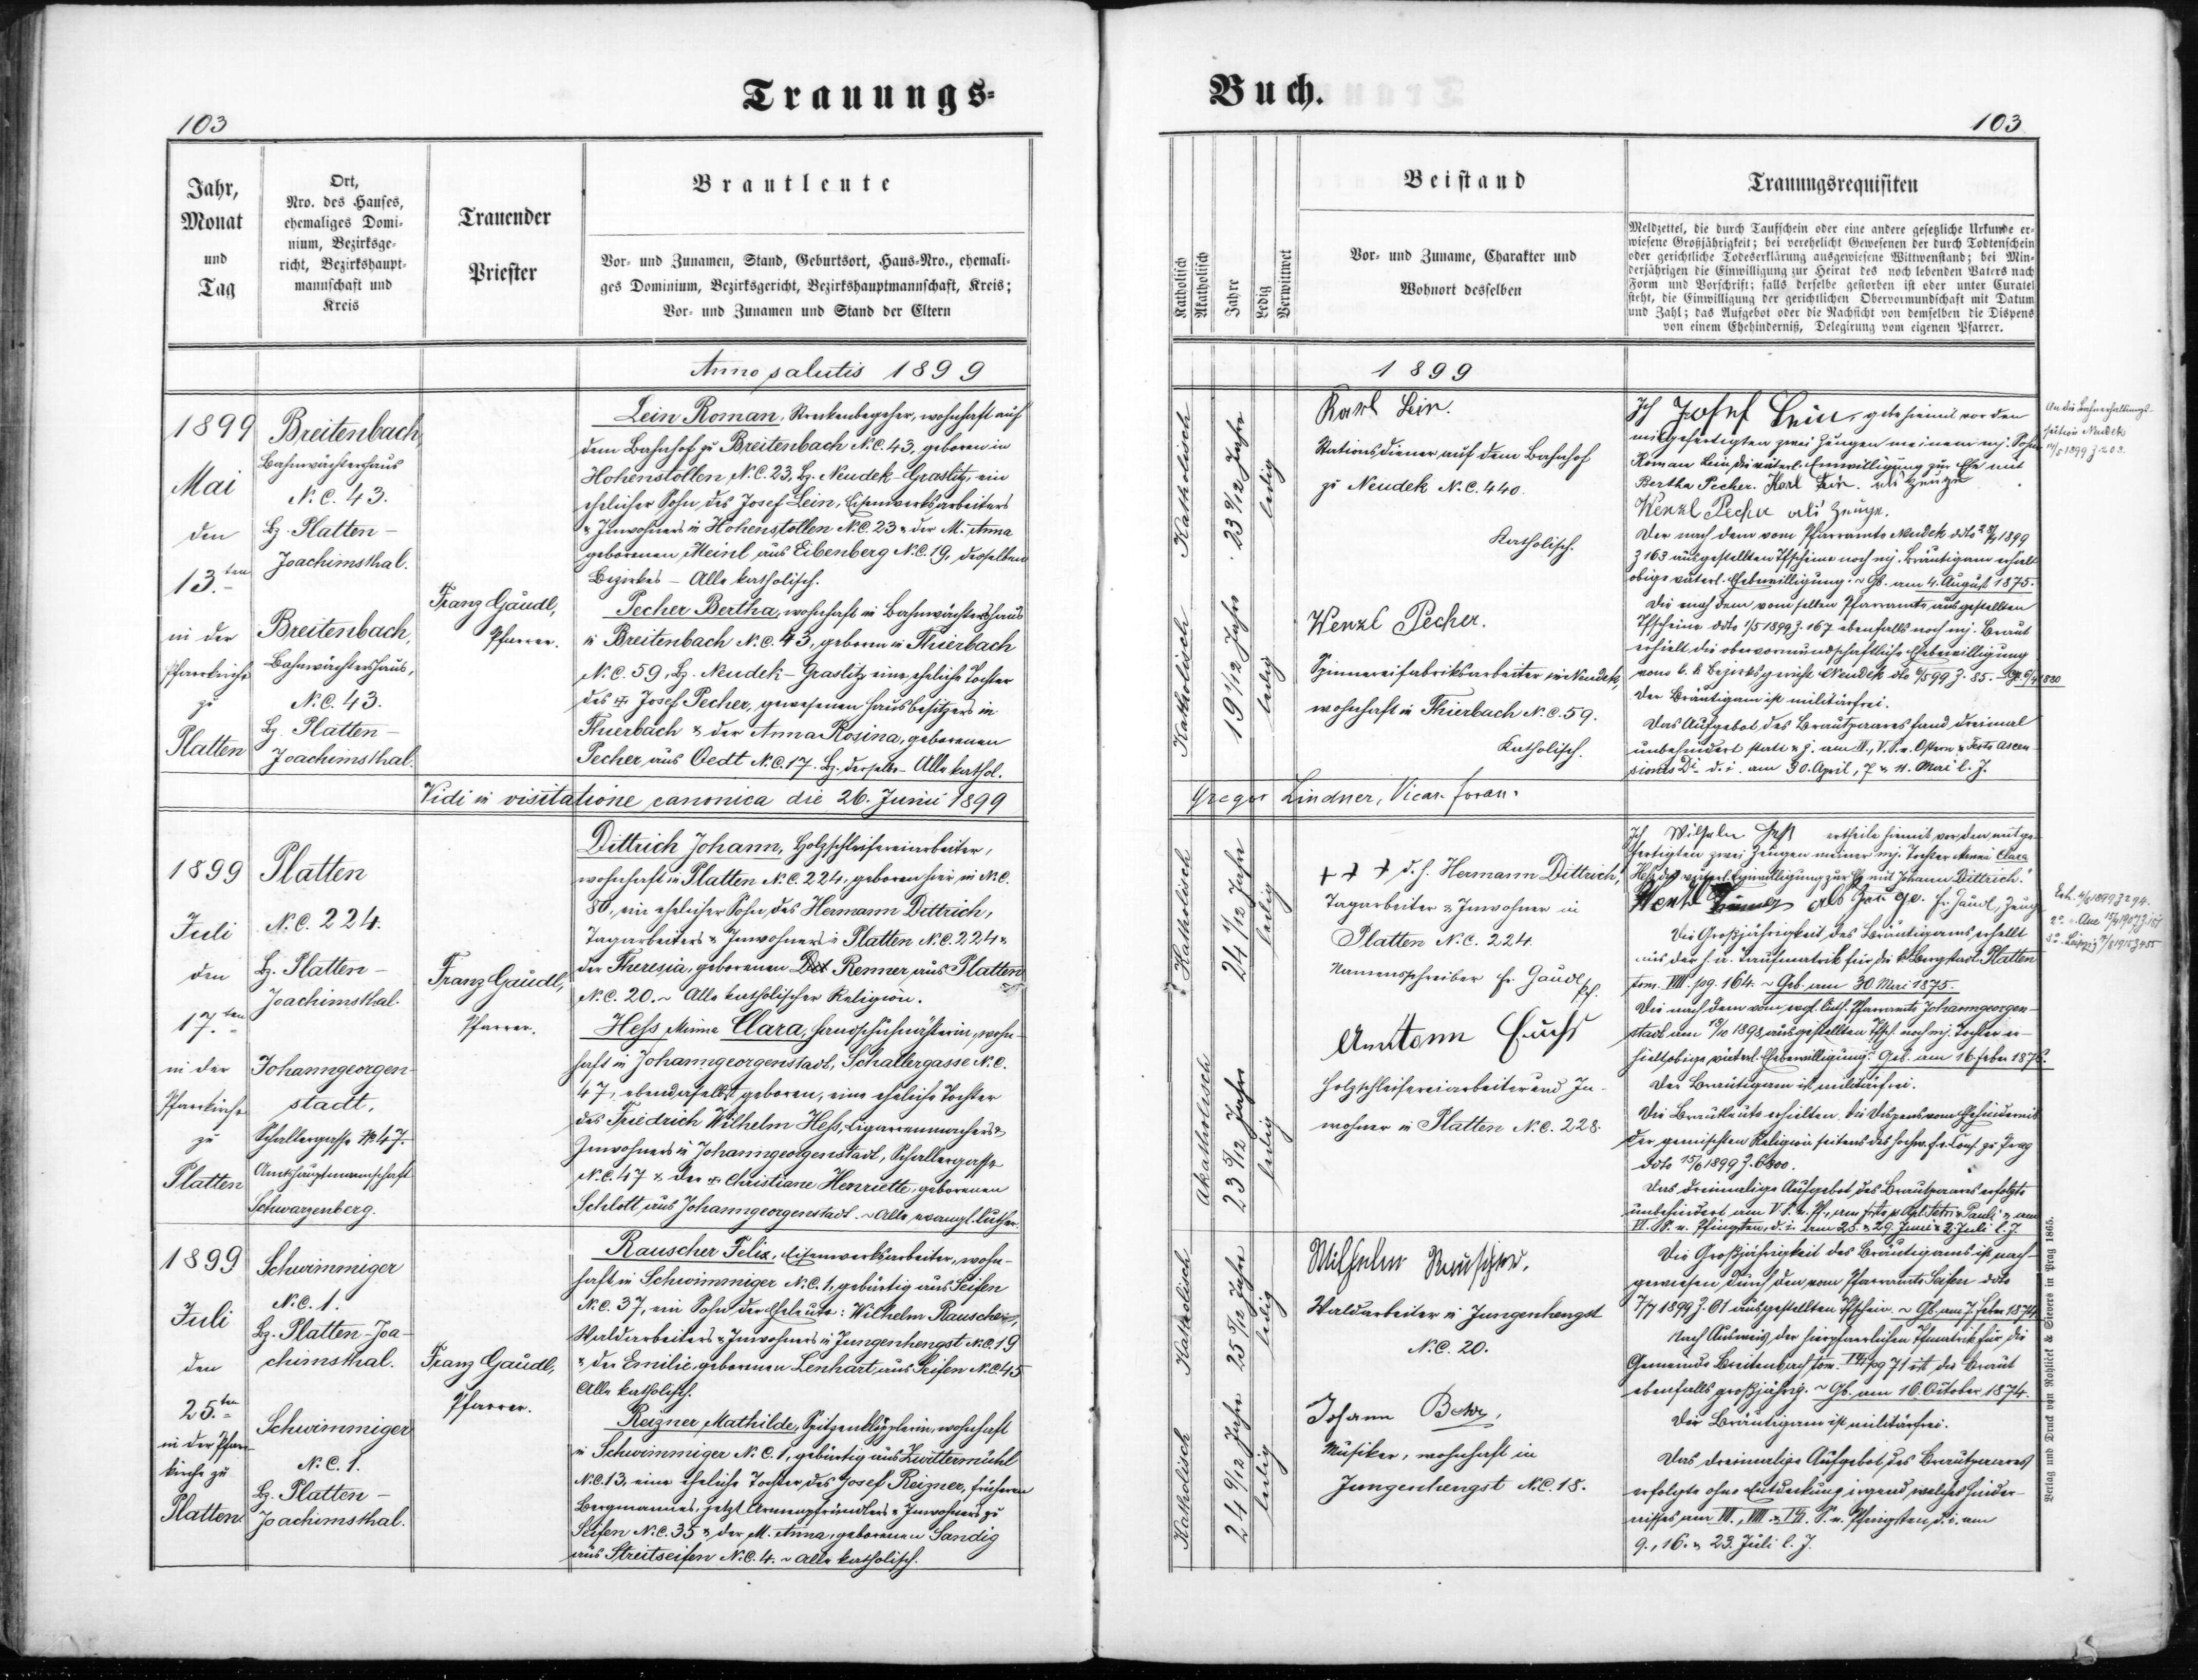 Trauungs-
103
Jahr,
Monat
und
Tag
Ort,
Nro. des Hauses,
ehemaliges Domi-
nium, Bezirksge-
richt, Bezirkshaupt-
mannschaft und
Kreis
Trauender
Priester
Brautleute
Vor- und Zunamen, Stand, Geburtsort, Haus-Nro., ehemali-
ges Dominium, Bezirksgericht, Bezirkshauptmannschaft, Kreis;
Vor- und Zunamen und Stand der Eltern
Anno salutis 1899
1899
Mai
den
13.ten
in der
Pfarrkirche
zu
Platten
Breitenbach,
Bahnwächterhaus
N.C. 43.
Bz. Platten-
Joachimsthal.
Breitenbach,
Bahnwächterhaus,
N.C. 43.
Bz. Platten-
Joachimsthal.
Franz Gaudl,
Pfarrer.
Lein Roman, Streckenbegeher, wohnhaft auf
dem Bahnhof zu Breitenbach N.C. 43, geboren in
Hohenstollen N.C. 23, Bz. Neudek-Graslitz, ein
ehelicher Sohn des Josef Lein, Eisenwerksarbeiters
u. Inwohners in Hohenstollen N.C. 23 u. der M. Anna
geborenen Meinl aus Eibenberg N.C. 19, desselben
Bezirkes – Alle katholisch.
Pecher Bertha, wohnhaft in Bahnwächterhaus
in Breitenbach N.C. 43, geboren in Thierbach
N.C. 59, Bz. Neudek-Graslitz eine eheliche Tochter
des + Josef Pecher, gewesenen Hausbesitzers in
Thierbach u. der Anna Rosina, geborenen
Pecher aus Oedt N.C. 17. Bz. derselbe – Alle kathol.
Vidi in visitatione canonica die 26. Junii 1899
1899
Juli
den
17.ten
in der
Pfarrkirche
zu
Platten
Platten
N.C. 224.
Bz. Platten-
Joachimsthal.
Johanngeorgen-
stadt,
Schallergasse N. 47.
Amtshauptmannschaft
Schwarzenberg.
Franz Gaudl,
Pfarrer.
Dittrich Johann, Holzschleifereiarbeiter,
wohnhaft in Platten N.C. 224, geboren hier, in N.C.
80, ein ehelicher Sohn des Hermann Dittrich,
Tagarbeiters u. Inwohners in Platten N.C. 224 u.
der Theresia, geborenen Renner aus Platten
N.C. 20. ~ Alle katholischer Religion.
Hess Minna Clara, Handschuhnähterin, wohn-
haft in Johanngeorgenstadt, Schallergasse N.C.
47, ebendaselbst geboren, eine eheliche Tochter
des Friedrich Wilhelm Hess, Cigarrenmachers u.
Inwohners in Johanngeorgenstadt, Schallergasse
N.C. 47 u. der + Christiane Henriette, geborenen
Schlott aus Johanngeorgenstadt. ~ Alle evangl. luther.
1899
Juli
den
25.ten
in der Pfarr-
kirche zu
Platten
Schwimmiger
N.C. 1.
Bz. Platten-Joa-
chimsthal.
Schwimmiger
N.C. 1.
Bz. Platten-
Joachimsthal.
Franz Gaudl,
Pfarrer.
Rauscher Felix, Eisenwerksarbeiter, wohn-
haft in Schwimmiger N.C. 1, gebürtig aus Seifen
N.C. 37, ein Sohn der Eheleute: Wilhelm Rauscher,
Waldarbeiters u. Inwohners in Jungenhengst N.C. 19
u. der Emilie, geborenen Lenhart aus Seifen N.C. 45
Alle katholisch.
Reizner Mathilde, Spitzenklöpplerin, wohnhaft
in Schwimmiger N.C. 1, gebürtig aus Zwittermühl
N.C. 13, eine eheliche Tochter des Josef Reizner, früheren
Bergmannes, jetzt Armenpfründlers u. Inwohners zu
Seifen N.C. 35 u. der M. Anna, geborenen Sandig
aus Streitseifen N.C. 4. ~ Alle katholisch.
Buch.
103
Katholisch
Akatholisch
Jahre
Ledig
Verwittwet
Beistand
Vor- und Zuname, Charakter und
Wohnort desselben
Trauungsrequisiten
Meldzettel, die durch Taufschein oder eine andere gesetzliche Urkunde er-
wiesene Großjährigkeit; bei verehelicht Gewesenen der durch Todtenschein
oder gerichtliche Todeserklärung ausgewiesene Wittwenstand; bei Min-
derjährigen die Einwilligung zur Heirat des noch lebenden Vaters nach
Form und Vorschrift; falls derselbe gestorben ist oder unter Curatel
steht, die Einwilligung der gerichtlichen Obervormundschaft mit Datum
und Zahl; das Aufgebot oder die Nachsicht von demselben die Dispens
von einem Ehehinderniß, Delegirung vom eigenen Pfarrer.
1899
Katholisch
23 9/12 Jahre
ledig
Karl Lein.
Stationsdiener auf dem Bahnhof
zu Neudek N.C. 440.
Katholisch.
Katholisch
19 1/12 Jahre
ledig
Wenzl Pecher.
Spinnereifabriksarbeiter in Neudek,
wohnhaft in Thierbach N.C. 59.
Katholisch.
Ich Josef Lein, gebe hiemit vor den
mitgefertigten zwei Zeugen meinem mj. Sohne
Roman Lein die väterl. Einwilligung zur Ehe mit
Bertha Pecher. Karl Lein. als Zeuge
Wenzl Pecher als Zeuge.
Der nach dem vom Pfarramte Neudek ddto 28/4 1899
Z 163 ausgestellten Tfscheine noch mj. Bräutigam erhielt
obige väterl. Ehebewilligung. ~ Gb. am 4. August 1875.
Die nach dem vom selben Pfarramte ausgestellten
Tfscheine ddto 1/5 1899 Z. 167 ebenfalls noch mj. Braut
erhielt die obervormundschaftliche Ehebewilligung
vom k. k. Bezirksgericht Neudek
Der Bräutigam ist militärfrei.
Das Aufgebot des Brautpaares fand dreimal
unbehindert statt u. z. am IV., V. S. n. Ostern u. Festo Ascen-
sionis Di. d. i. am 30. April, 7. u. 11. Mai l. J.
An die Bahnerhaltungs-
section Neudek
Gregor Lindner, Vicar. foran.
Katholisch
24 1/12 Jahre
ledig
+ + + d. h. Hermann Dittrich,
Tagarbeiter u. Inwohner in
Platten N.C. 224.
Namensschreiber Fr. Gaudl
Pf.
Akatholisch
23 5/12 Jahre
ledig
Anton Fuchs
Holzschleifereiarbeiter und In-
wohner in Platten N.C. 228.
Ich Wilhelm Heß ertheile hiemit vor den mitge-
fertigten zwei Zeugen meiner mj. Tochter Minna Clara
Heß die väterl. Einwilligung zur Ehe mit Johann Dittrich.
als Zeuge. Fr. Gaudl, Zeuge
Die Großjährigkeit des Bräutigams erhellt
aus der h. ä. Taufmatrik für die k. Bergstadt Platten
tom. VIII. pg. 164. ~ Geb. am 30. Mai 1875.
Die nach dem vom evgl. luth. Pfarramte Johanngeorgen-
stadt am 13/10 1898 ausgestellten Tfsch. noch mj. Tochter er-
hielt obige väterl. Ehebewilligung. Geb. am 16 feber 1876.
Der Bräutigam ist militärfrei.
Die Brautleute erhielten die Dispens vom Ehehinderniß
der gemischten Religion seitens des hochw. f. e. Cons. zu Prag
ddto 15/6 1899 Z. 6800.
Das dreimalige Aufgebot des Brautpaares erfolgte
unbehindert am V. S. n. Pf., am feste Apl. Petri u. Pauli u. am
VI. S. n. Pfingsten, d. i. am 25. u. 29. Juni u. 2. Juli l. J.
Katholisch
25 5/12 Jahre
ledig
Wilhelm Rauscher.
Waldarbeiter in Jungenhengst
N.C. 20.
Katholisch
24 9/12 Jahre
ledig
Johann
Musiker, wohnhaft in
Jungenhengst N.C. 18.
Die Großjährigkeit des Bräutigams ist nach-
gewiesen durch den vom Pfarramte Seifen ddto
7/7 1899 Z. 61 ausgestellten Tfschein. ~ Gb. am 7. feber 1874.
Nach Ausweis der hierpfarrlichen Tfmatrik für die
Gemeinde Breitenbach tom. IX pg 71 ist die Braut
ebenfalls großjährig. ~ Gb. am 10. October 1874.
Der Bräutigam ist militärfrei.
Das dreimalige Aufgebot des Brautpaares
erfolgte ohne Entdeckung irgend welches Hinder-
nisses am VII., VIII. u. IX. S. n. Pfingsten, d. i. am
9., 16. u. 23. Juli l. J.
Verlag und Druck von Rohliček & Sievers in Prag 1865.